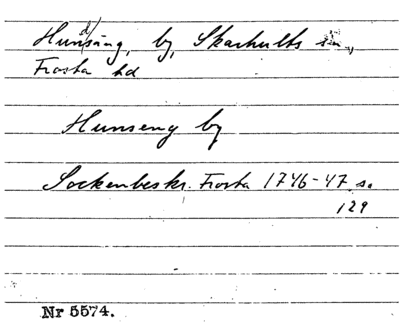 Hundsäng, by, Skarhults sn.,
Frosta hd
Hunseng by
Sockenbeskr. Frosta 1746-47 s.
129
Nr 5574.